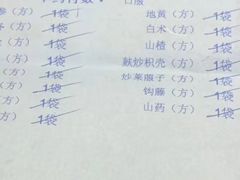 付数：
口服
参（方） 1袋
地黄（方） 1袋
（方） 1袋
白术（方） 1袋
（方） 1袋
山楂（方） 1袋
（方） 1袋
麸炒枳壳（方） 1袋
（方） 1袋
炒莱菔子（方） 1袋
（方） 1袋
钩藤（方） 1袋
（方） 1袋
山药（方） 1袋